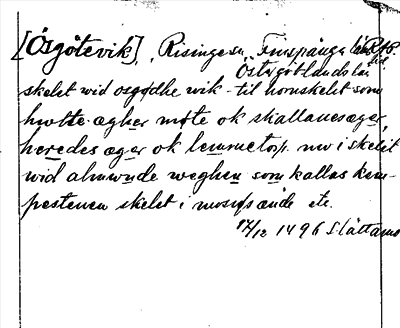 [Ösgötevik], Risinge sn, Finspånga läns
Östergötlands län
skelet wid osgødhe wik - til hornskelet som
hwtte ægher møte ok skallanes æger,
heredes æger ok lemmetorp. nw i skelit
wid almwnde weghen som kallas kem-
pestenen skelet i mosses ænde etc.
17/12 1496 Slättamo